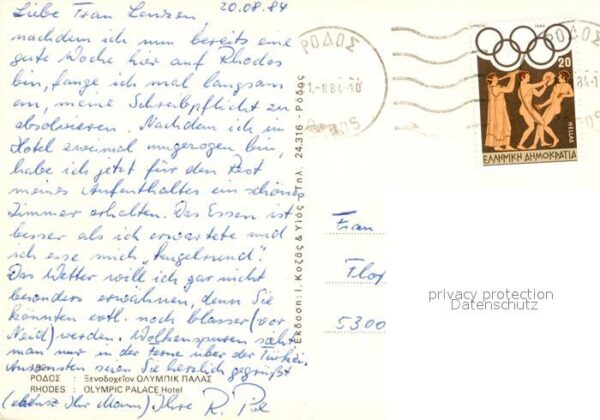 20.08.84
Liebe Frau Lenzen,
nachdem ich nun bereits eine
gute Woche hier auf Rhodos
bin, fange ich mal langsam
an, meine Schreibpflicht zu
absolvieren. Nachdem ich im
Hotel zweimal umgezogen bin,
habe ich jetzt für den Rest
meines Aufenthaltes ein schönes
Zimmer erhalten. Das Essen ist
besser als ich erwartete und
ich esse mich "kugelrund".
Das Wetter will ich gar nicht
besonders erwähnen, denn Sie
könnten evtl. noch blasser (vor
Neid) werden. Wolkenspuren sieht
man nur in der Ferne über der Türkei.
Ansonsten seien Sie herzlich gegrüßt
ΡΟΔΟΣ : Ξενοδοχεῖον ΟΛΥΜΠΙΚ ΠΑΛΑΣ
RHODES : OLYMPIC PALACE Hotel
(ebenso Ihr Mann) Ihre R.
Ἔκδοση: Ι. Κοζᾶς & Υἱός Τηλ. 24.316 - Ρόδος
ΡΟΔΟΣ
-8.84-10
84-1
1984
20
HELLAS
ΕΛΛΗΝΙΚΗ ΔΗΜΟΚΡΑΤΙΑ
Frau
5300
privacy protection
Datenschutz